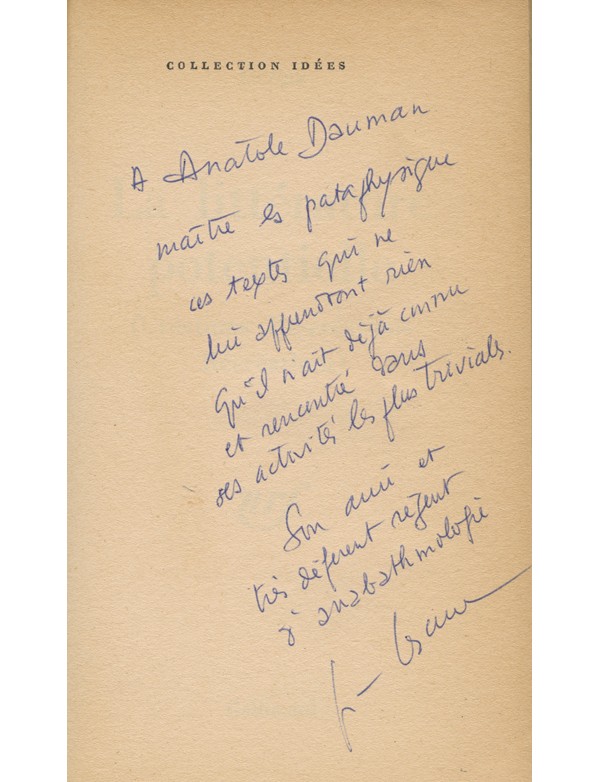 COLLECTION IDÉES
A Anatole Dauman
maître ès pataphysique
ces textes qui ne
lui apprendront rien
qu'il n'ait déjà connu
et rencontré dans
ses activités les plus triviales.
Son ami et
très déférent régent
d'anabathmologie